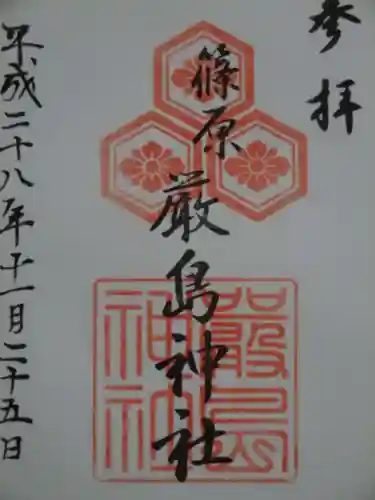 参拝
篠原
厳島神社
嚴島
神社
平成二十八年十一月二十五日